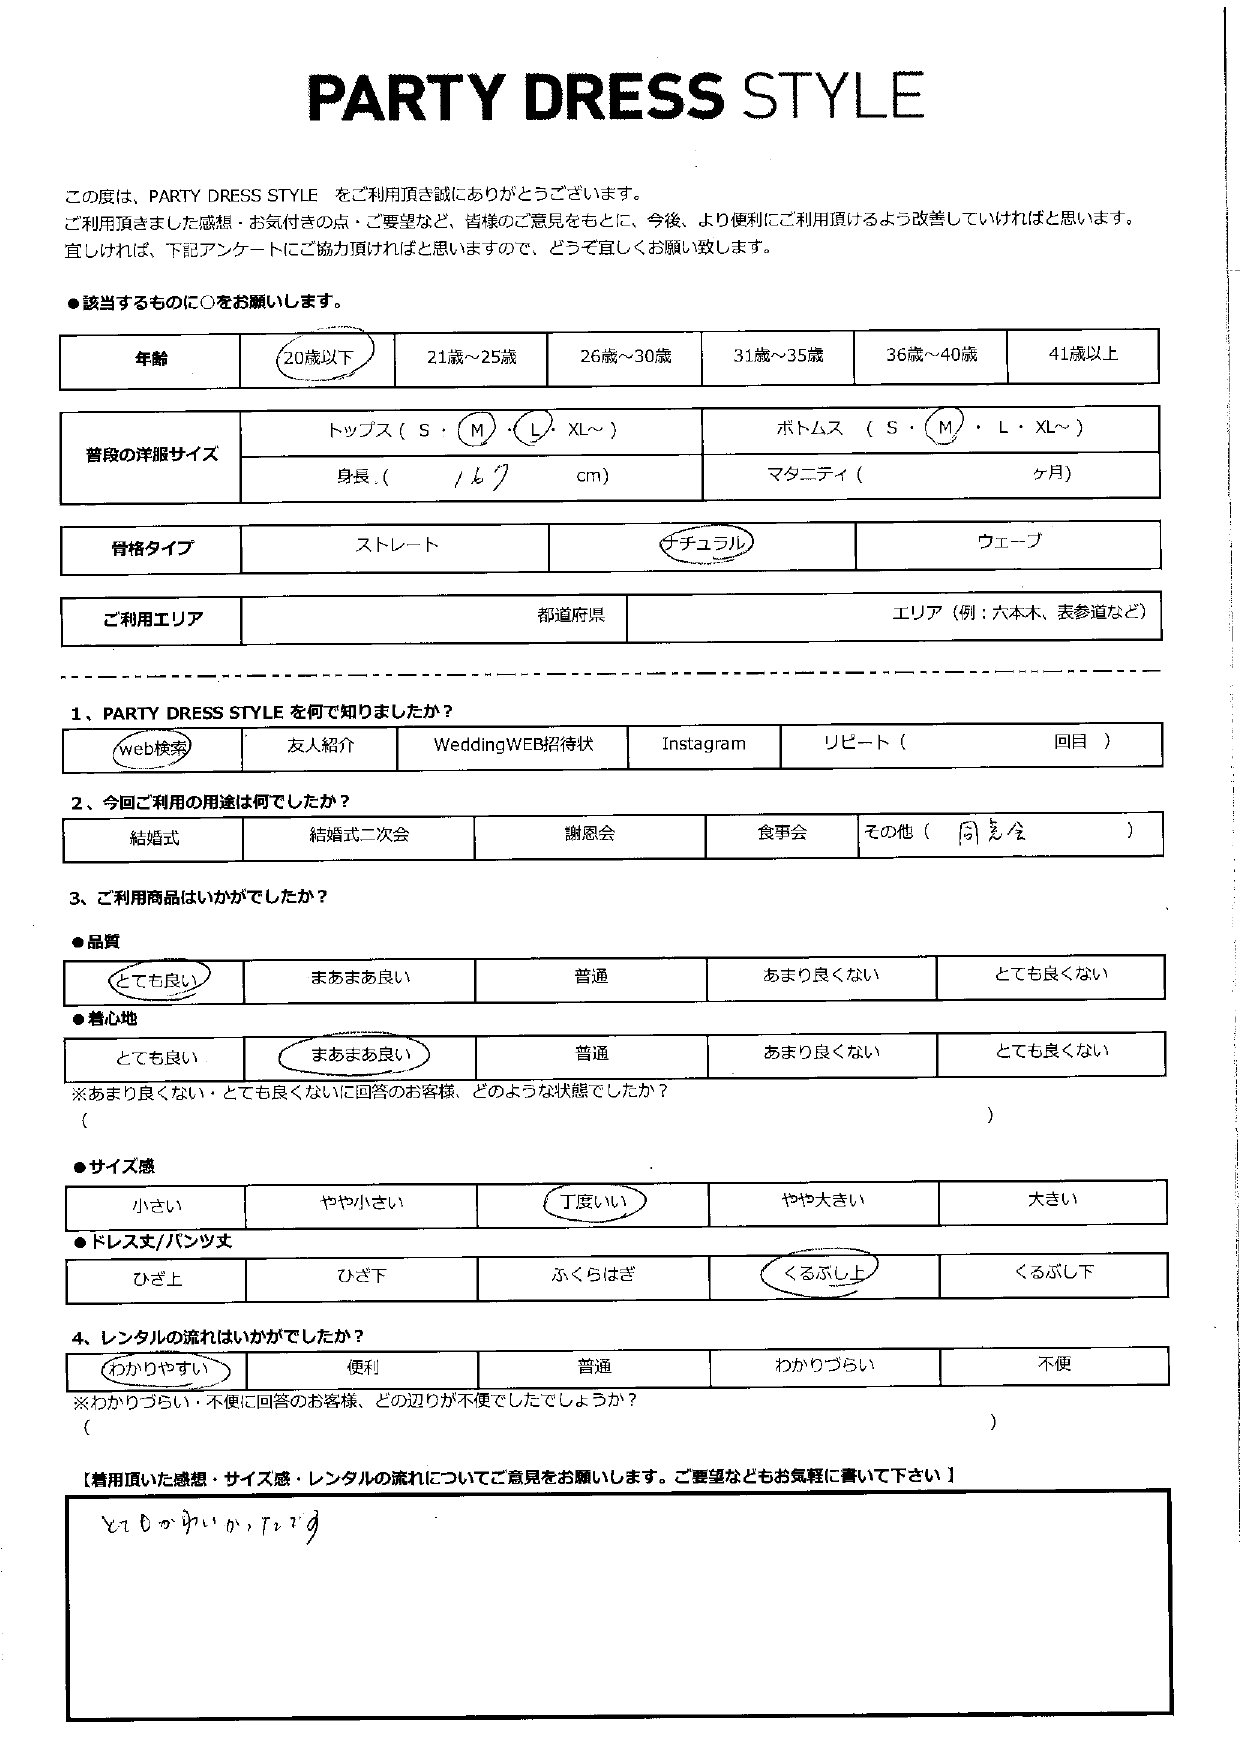 PARTY DRESS STYLE
この度は、PARTY DRESS STYLE をご利用頂き誠にありがとうございます。
ご利用頂きました感想・お気付きの点・ご要望など、皆様のご意見をもとに、今後、より便利にご利用頂けるよう改善していければと思います。
宜しければ、下記アンケートにご協力頂ければと思いますので、どうぞ宜しくお願い致します。
●該当するものに○をお願いします。
年齢 20歳以下 21歳～25歳 26歳～30歳 31歳～35歳 36歳～40歳 41歳以上
普段の洋服サイズ トップス ( S ・ M ・ L ・ XL～ ) ボトムス ( S ・ M ・ L ・ XL～ )
身長 ( 167 cm) マタニティ ( ヶ月)
骨格タイプ ストレート ナチュラル ウェーブ
ご利用エリア 都道府県 エリア（例：六本木、表参道など）
1、PARTY DRESS STYLE を何で知りましたか？
web検索 友人紹介 WeddingWEB招待状 Instagram リピート ( 回目 )
2、今回ご利用の用途は何でしたか？
結婚式 結婚式二次会 謝恩会 食事会 その他 ( 同窓会 )
3、ご利用商品はいかがでしたか？
●品質
とても良い まあまあ良い 普通 あまり良くない とても良くない
●着心地
とても良い まあまあ良い 普通 あまり良くない とても良くない
※あまり良くない・とても良くないに回答のお客様、どのような状態でしたか？
( )
●サイズ感
小さい やや小さい 丁度いい やや大きい 大きい
●ドレス丈/パンツ丈
ひざ上 ひざ下 ふくらはぎ くるぶし上 くるぶし下
4、レンタルの流れはいかがでしたか？
わかりやすい 便利 普通 わかりづらい 不便
※わかりづらい・不便に回答のお客様、どの辺りが不便でしたでしょうか？
( )
【着用頂いた感想・サイズ感・レンタルの流れについてご意見をお願いします。ご要望などもお気軽に書いて下さい 】
とてもかわいかったです